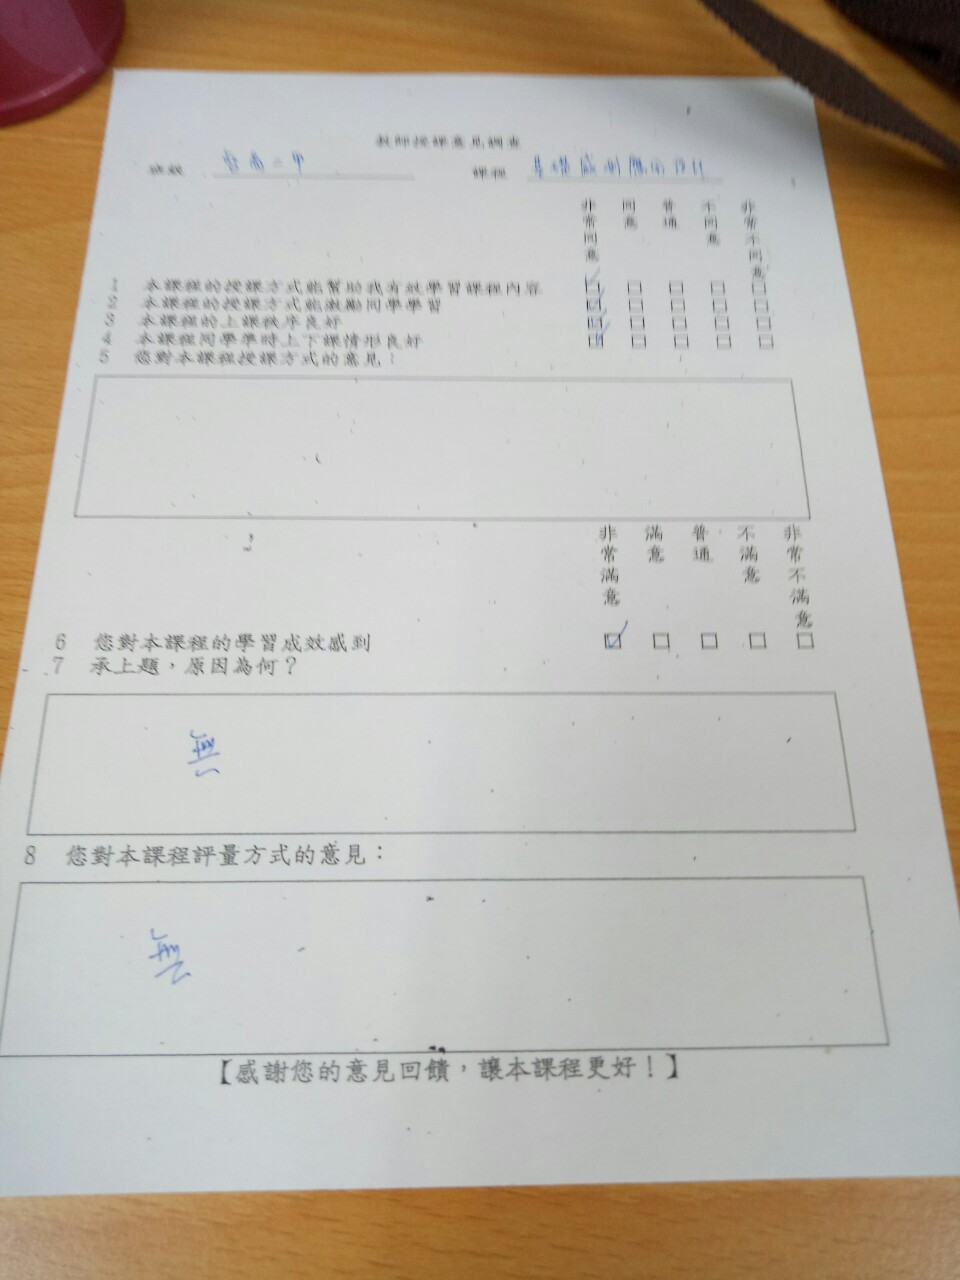 教師授課意見調查
班級 課程 基礎感測應用設計
非常同意 同意 普通 不同意 非常不同意
1 本課程的授課方式能幫助我有效學習課程內容 □ □ □ □ □
2 本課程的授課方式能激勵同學學習 □ □ □ □ □
3 本課程的上課秩序良好 □ □ □ □ □
4 本課程同學準時上下課情形良好 □ □ □ □ □
5 您對本課程授課方式的意見：
非常滿意 滿意 普通 不滿意 非常不滿意
6 您對本課程的學習成效感到 □ □ □ □ □
7 承上題，原因為何？
無
8 您對本課程評量方式的意見：
無
【感謝您的意見回饋，讓本課程更好！】